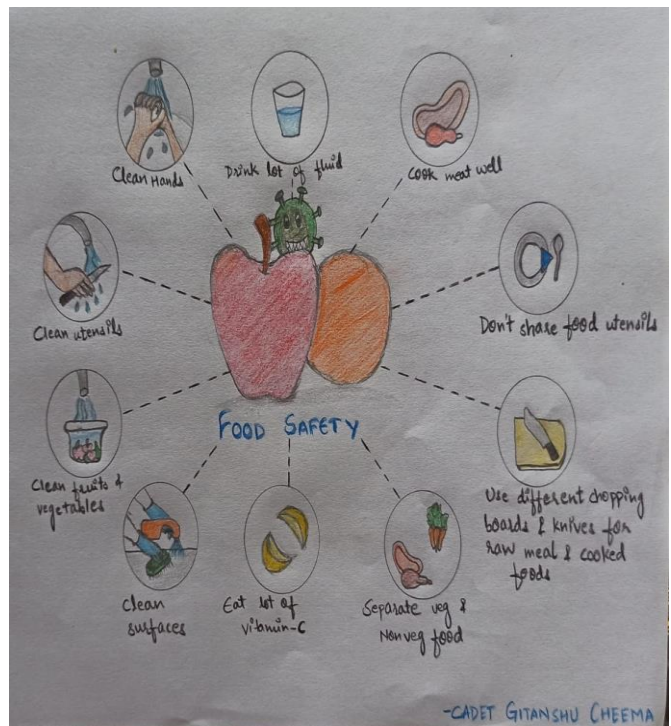 Clean Hands
Drink lot of fluid
Cook meat well
Clean utensils
Don't share food utensils
FOOD SAFETY
Clean fruits &
vegetables
Use different chopping
boards & knives for
raw meal & cooked
foods
Clean
surfaces
Eat lot of
vitamin-C
Separate veg &
Nonveg food
-CADET GITANSHU CHEEMA